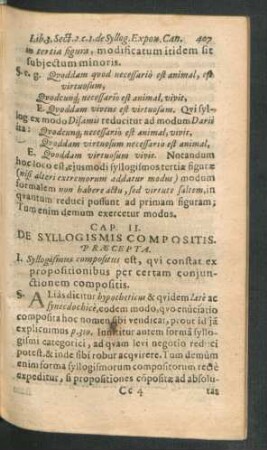 Lib.3. Sect.2. c.1. de Syllog. Expon. Can. 407
in tertia figura, modificatum itidem sit
subjectum minoris.
S. e. g. Qvoddam quod necessario est animal, est
virtuosum,
Qvodcunq; necessario est animal, vivit,
E. Qvoddam vivens est virtuosum. Qvi syl-
log ex modo Disamis reducitur ad modum Darii
ita: Qvodcunq; necessario est animal, vivit,
Qvoddam virtuosum necessario est animal,
E. Qvoddam virtuosum vivit. Notandum
hoc loco est, ejusmodi syllogismos tertiæ figuræ
(nisi alteri extremorum addatur modus) modum
formalem non habere actu, sed virtute saltem, in
quantum reduci possunt ad primam figuram;
Tum enim demum exercetur modus.
CAP. II.
DE SYLLOGISMIS COMPOSITIS.
PRÆCEPTA.
I. Syllogismus compositus est, qvi constat ex
propositionibus per certam conjun-
ctionem compositis.
S. ALiàs dicitur hypotheticus & qvidem latè ac
synecdochicè, eodem modo, qvo enũciatio
composita hoc nomen sibi vendicat, prout id jã
explicuimus p.310. Innititur autem formâ syllo-
gismi categorici, ad qvam levi negotio reduci
potest, & inde sibi robur acqvirere. Tum demũm
enim forma syllogismorum compositorum rectè
expeditur, si propositiones cõpositæ ad absolu-
Cc 4 tas